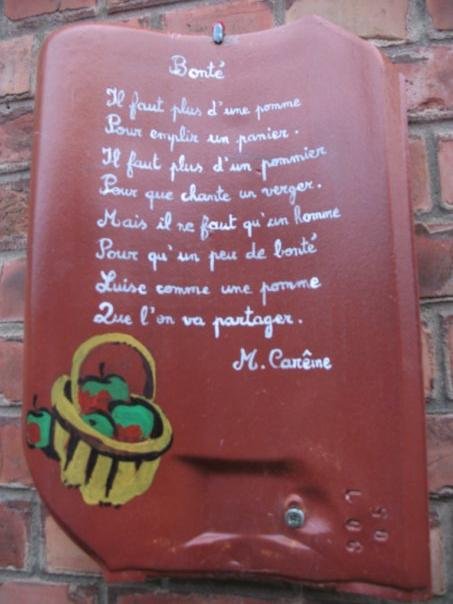 Bonté
Il faut plus d'une pomme
Pour emplir un panier.
Il faut plus d'un pommier
Pour que chante un verger.
Mais il ne faut qu'un homme
Pour qu'un peu de bonté
Luise comme une pomme
Que l'on va partager.
M. Carême